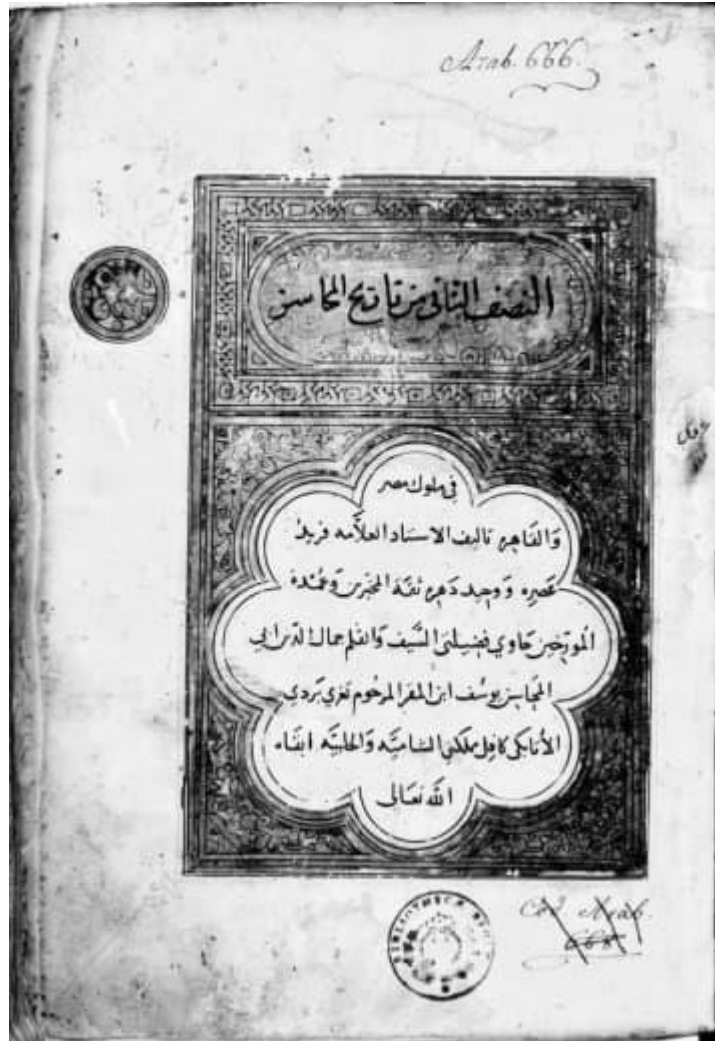 Arab. 666.
النصف الثاني من تاريخ المحاسن
في ملوك مصر
وَالقاهره تاليف الاستاد العلاَّمه فريد
عَصره وَوَحيد دَهره ثقة المخبرين وَعُمدة
المورّخين حَاوي فضيلتى السَّيف وَالقلم جمال الدّين ابي
المحَاسن يوسُف ابن المقر المرحُوم تغري بَردي
الأتابكى كافِل مملكتى الشاميَّه وَالحلبيَّه ابقاه
الله تعَالى
BIBLIOTHECA
Cod. Arab.